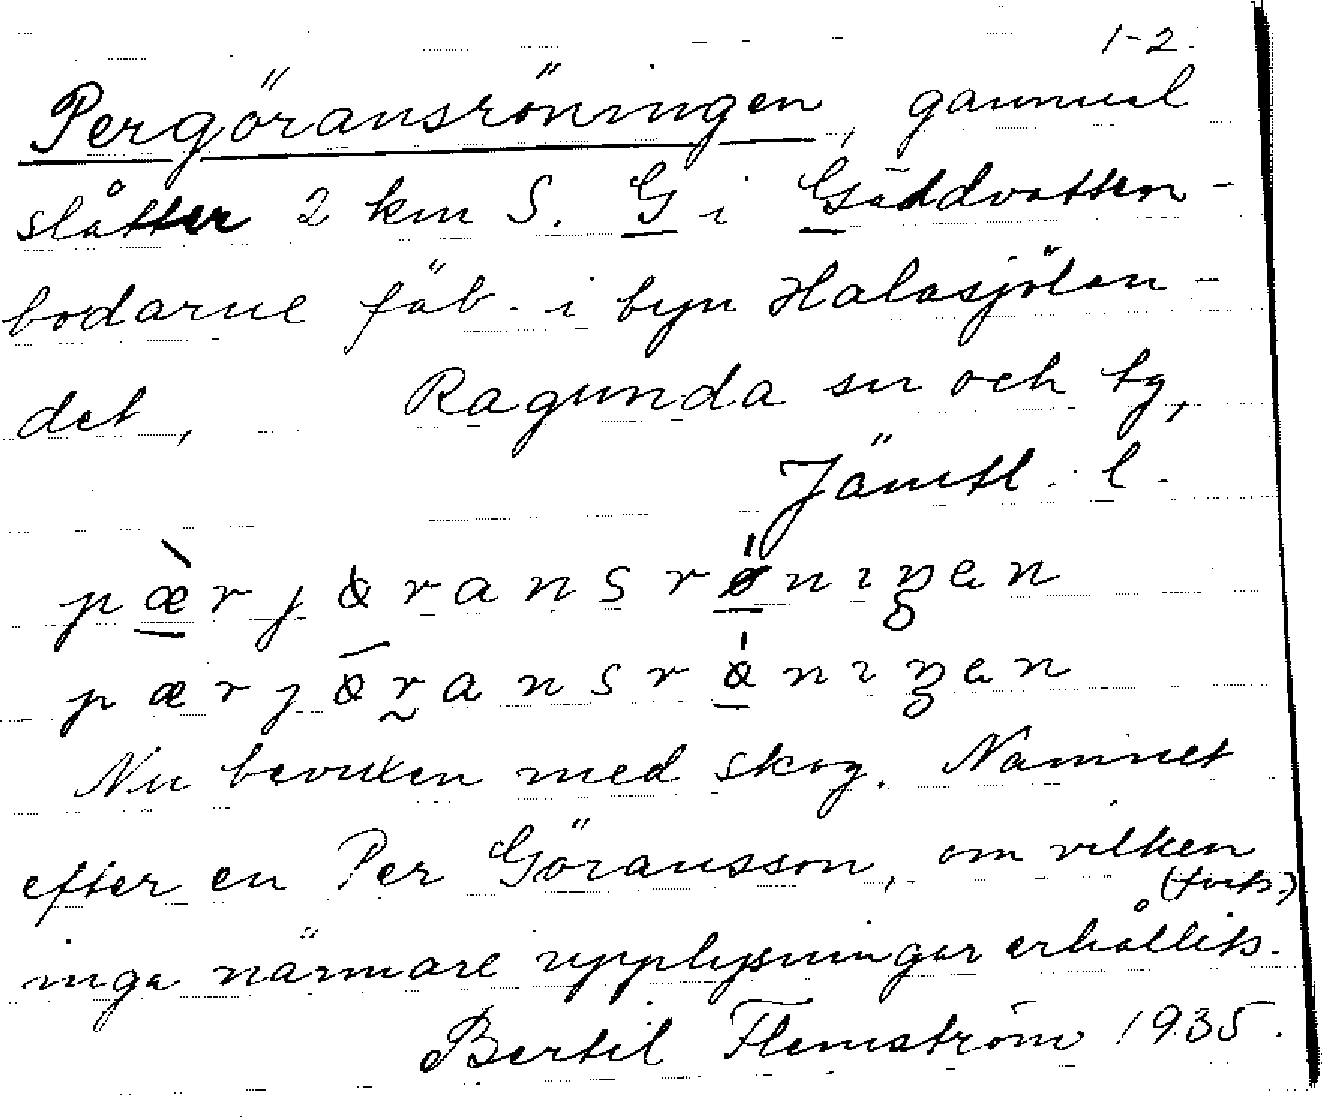 1-2.
Pergöransröningen, gammal
slåtter 2 km S. G i Gäddvatten-
bodarne fäb. i byn Halasjölan-
det, Ragunda sn och tg,
Jämtl. l.
pæ̀rjøransrø̈niŋen
pærjø̄ransrøniŋen
Nu bevuxen med skog. Namnet
efter en Per Göransson, om vilken
(forts.)
inga närmare upplysningar erhållits.
Bertil Flemström 1935.